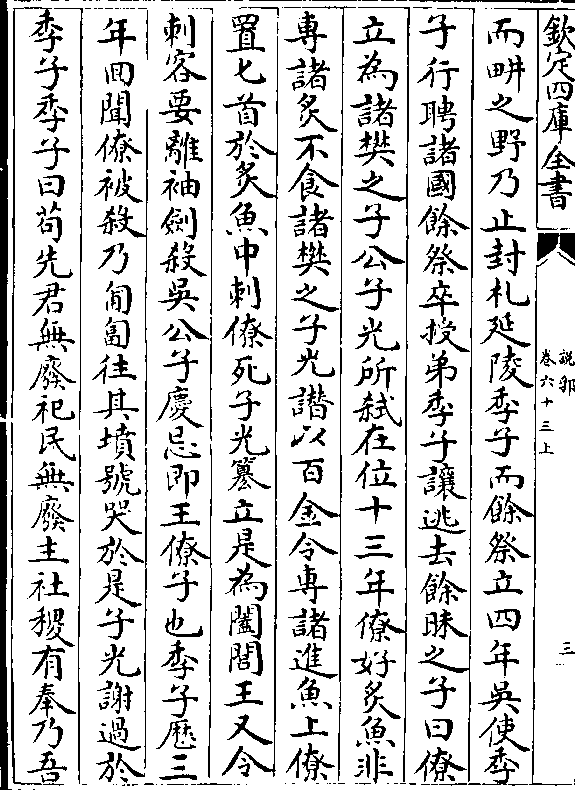 欽定四庫全書
說郛
卷六十三上
三
而畊之野乃止封札延陵季子而餘祭立四年吳使季
子行聘諸國餘祭卒授弟季子讓逃去餘昧之子曰僚
立為諸樊之子公子光所弒在位十三年僚好炙魚非
專諸炙不食諸樊之子光譖以百金令專諸進魚上僚
置匕首於炙魚中刺僚死子光簒立是為闔閭王又令
刺客要離袖劍殺吳公子慶忌即王僚子也季子歴三
年回聞僚被殺乃匍匐往其墳號哭於是子光謝過於
季子季子曰苟先君無廢祀民無廢主社稷有奉乃吾